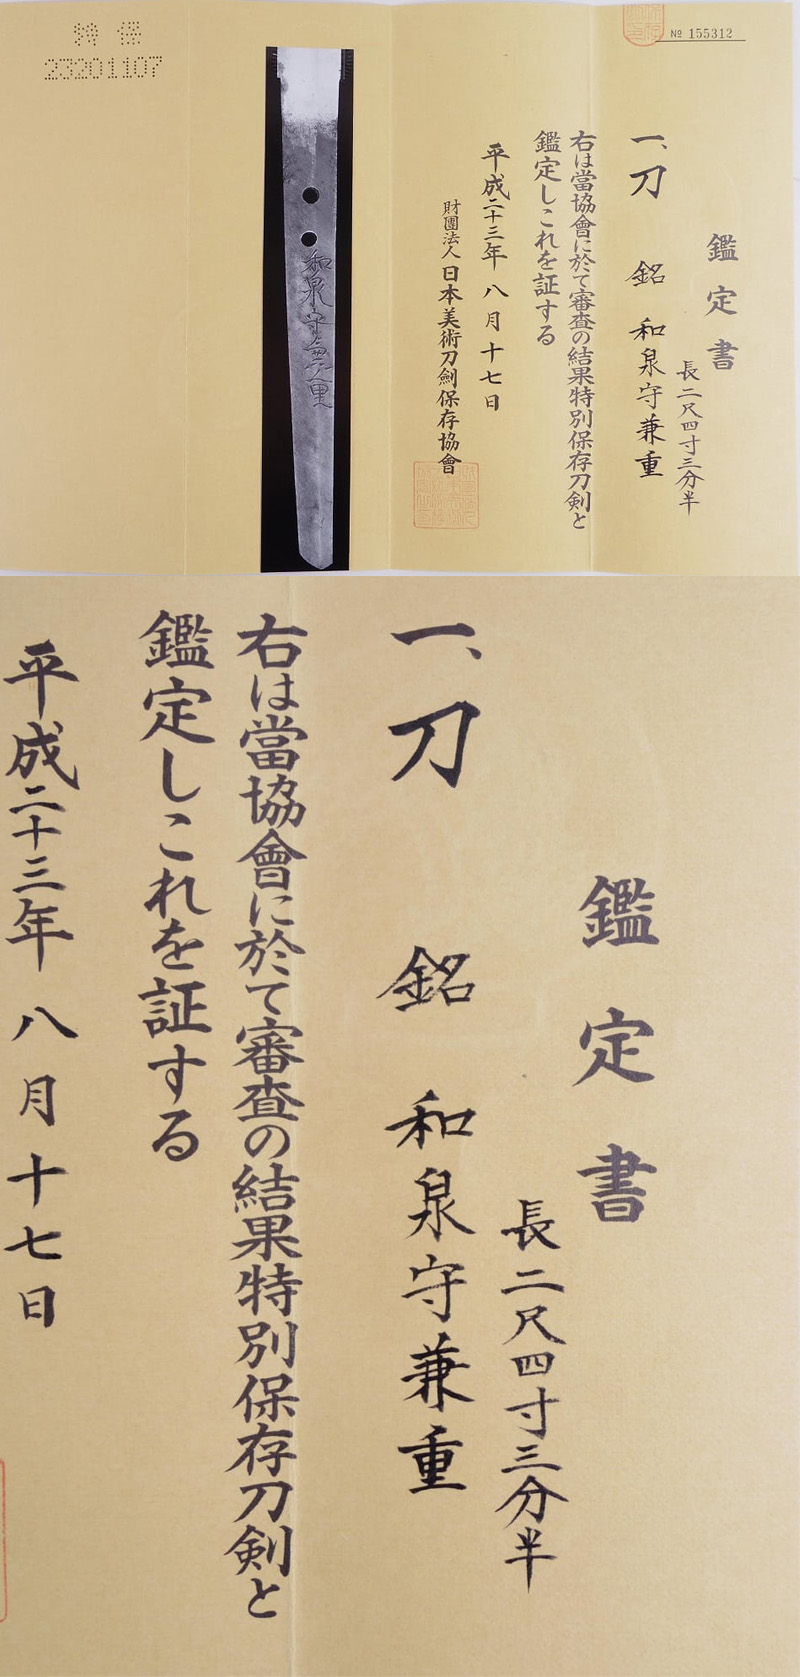 特保
23201107
№ 155312
鑑定書
長二尺四寸三分半
一、刀 銘 和泉守兼重
右は當協會に於て審査の結果特別保存刀剣と
鑑定しこれを証する
平成二十三年八月十七日
財團法人日本美術刀劍保存協會
和泉守兼重
鑑定書
長二尺四寸三分半
一、刀 銘 和泉守兼重
右は當協會に於て審査の結果特別保存刀剣と
鑑定しこれを証する
平成二十三年八月十七日